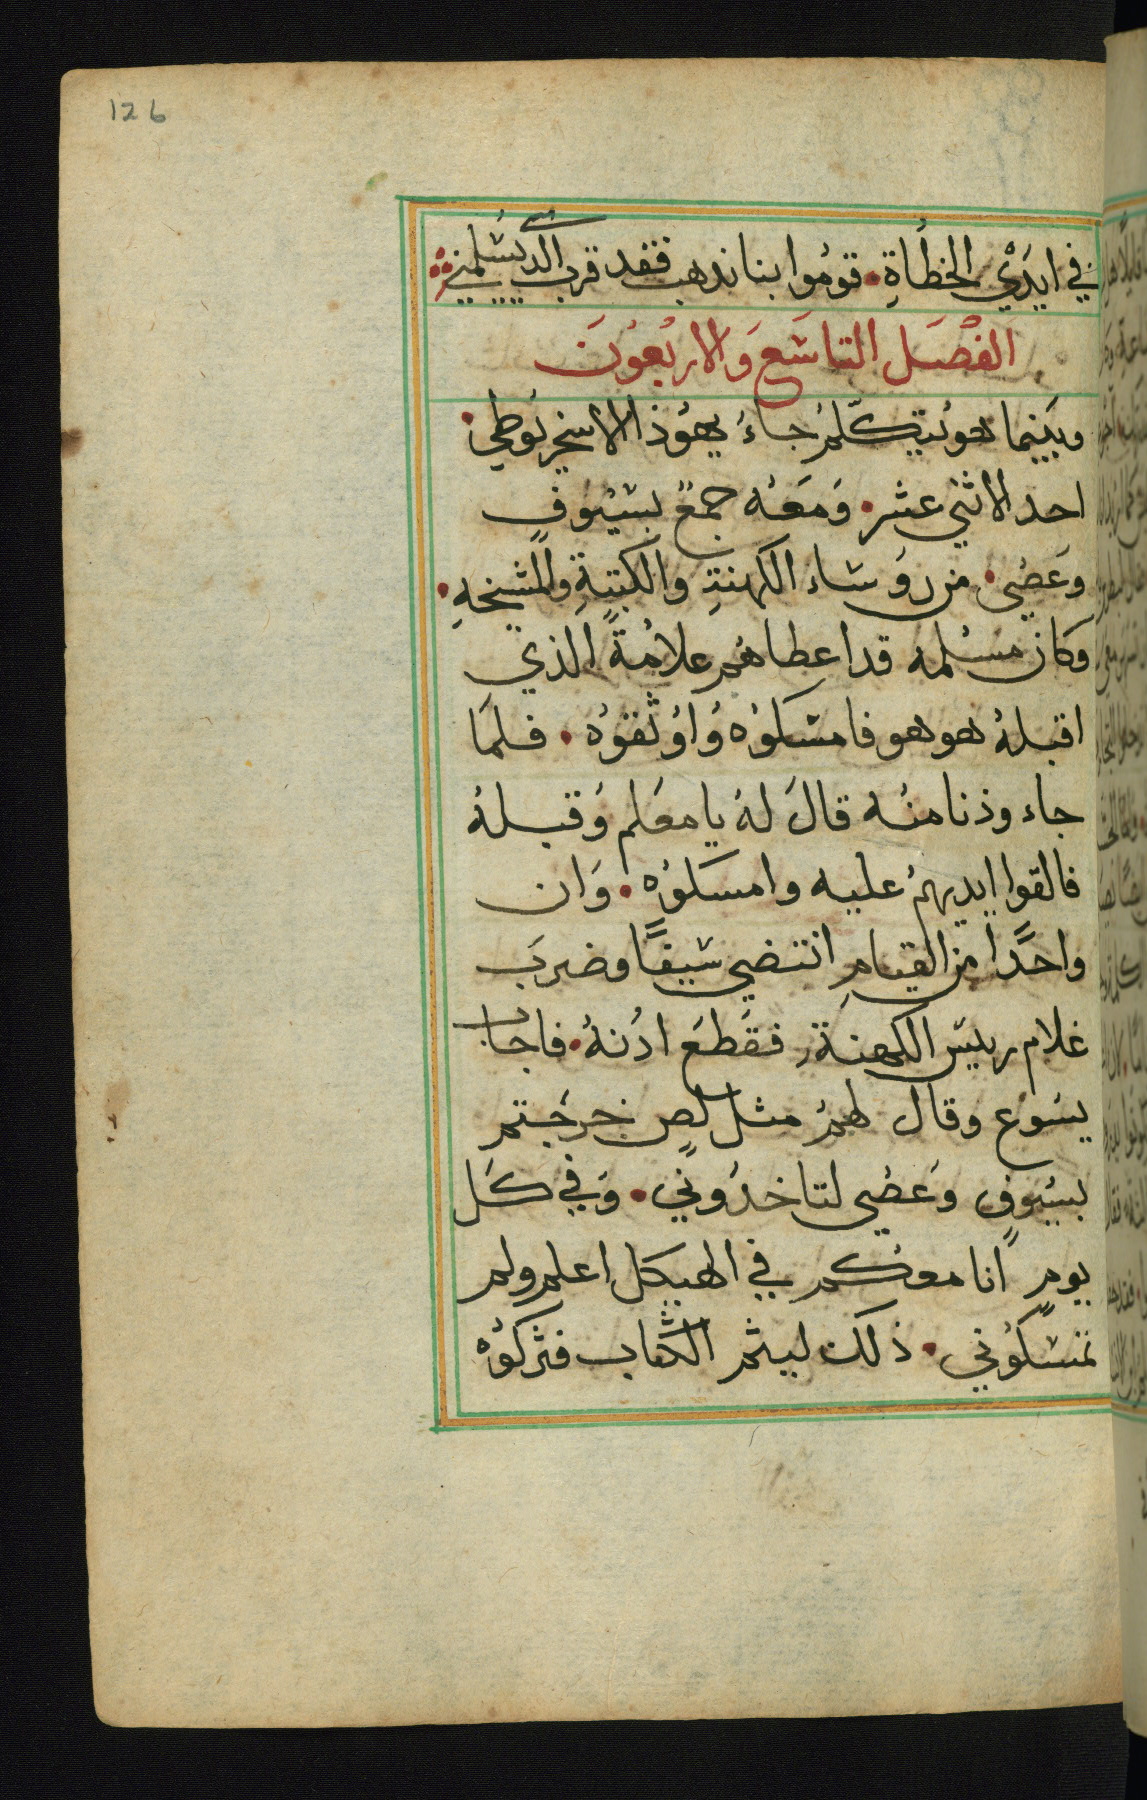 126
في ايدَيْ الخطُاةِ. قومُوا بنا نذهب فقد قرب الدي يسُلمني
الفصَل التاسَع وَالاربُعوُنَ
وبَينما هوُيتكلّمُ جاءَ يهوُذا الاسخريوُطي.
احد الاثني عشر. وَمَعُه جمعُ بسُيُوفٍ
وعَصُي. من روُساء الكهنةِ والكتبةِ والمشيخهِ.
وَكان مسُلمه قداعطاهُم علامُةً الذي
اقبلهُ هوهو فامسَكوُه وُاوُثقوُه. فلمَا
جاء ودنامنُه قالَ لهُ يامعَلم وَقبلهُ
فالقوا ايديهمُ عليه وامسكوُه. وَان
واحدًا من القيامِ انتضي سَيفًا وضربَ
غلام رييسَ الكهنةِ. فقَطعَ ادُنهُ. فاجاب
يسُوع وقال لهمُ مثل لصٍ خرجَتم
بسيُوفٍ وَعَصُي لتاخدوُني. وَفي كَل
يومٍ انا معكمُ في الهيكل اعلم ولم
تمسَكوُني. ذلك ليتم الكتاب فتركوُه